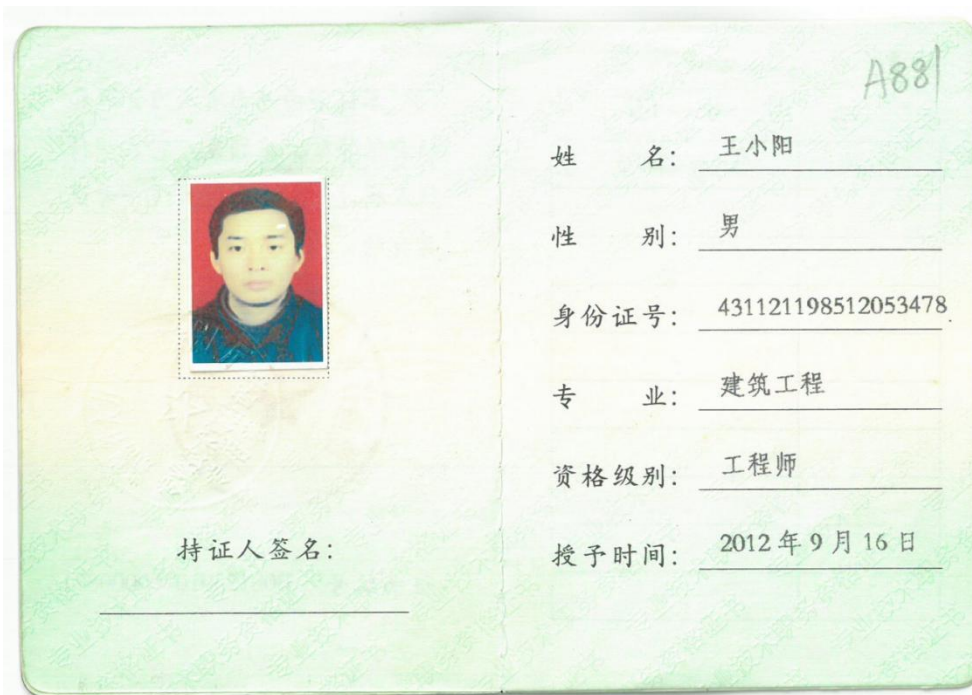 A881
姓 名: 王小阳
性 别: 男
身份证号: 431121198512053478
专 业: 建筑工程
资格级别: 工程师
持证人签名:
授予时间: 2012年9月16日